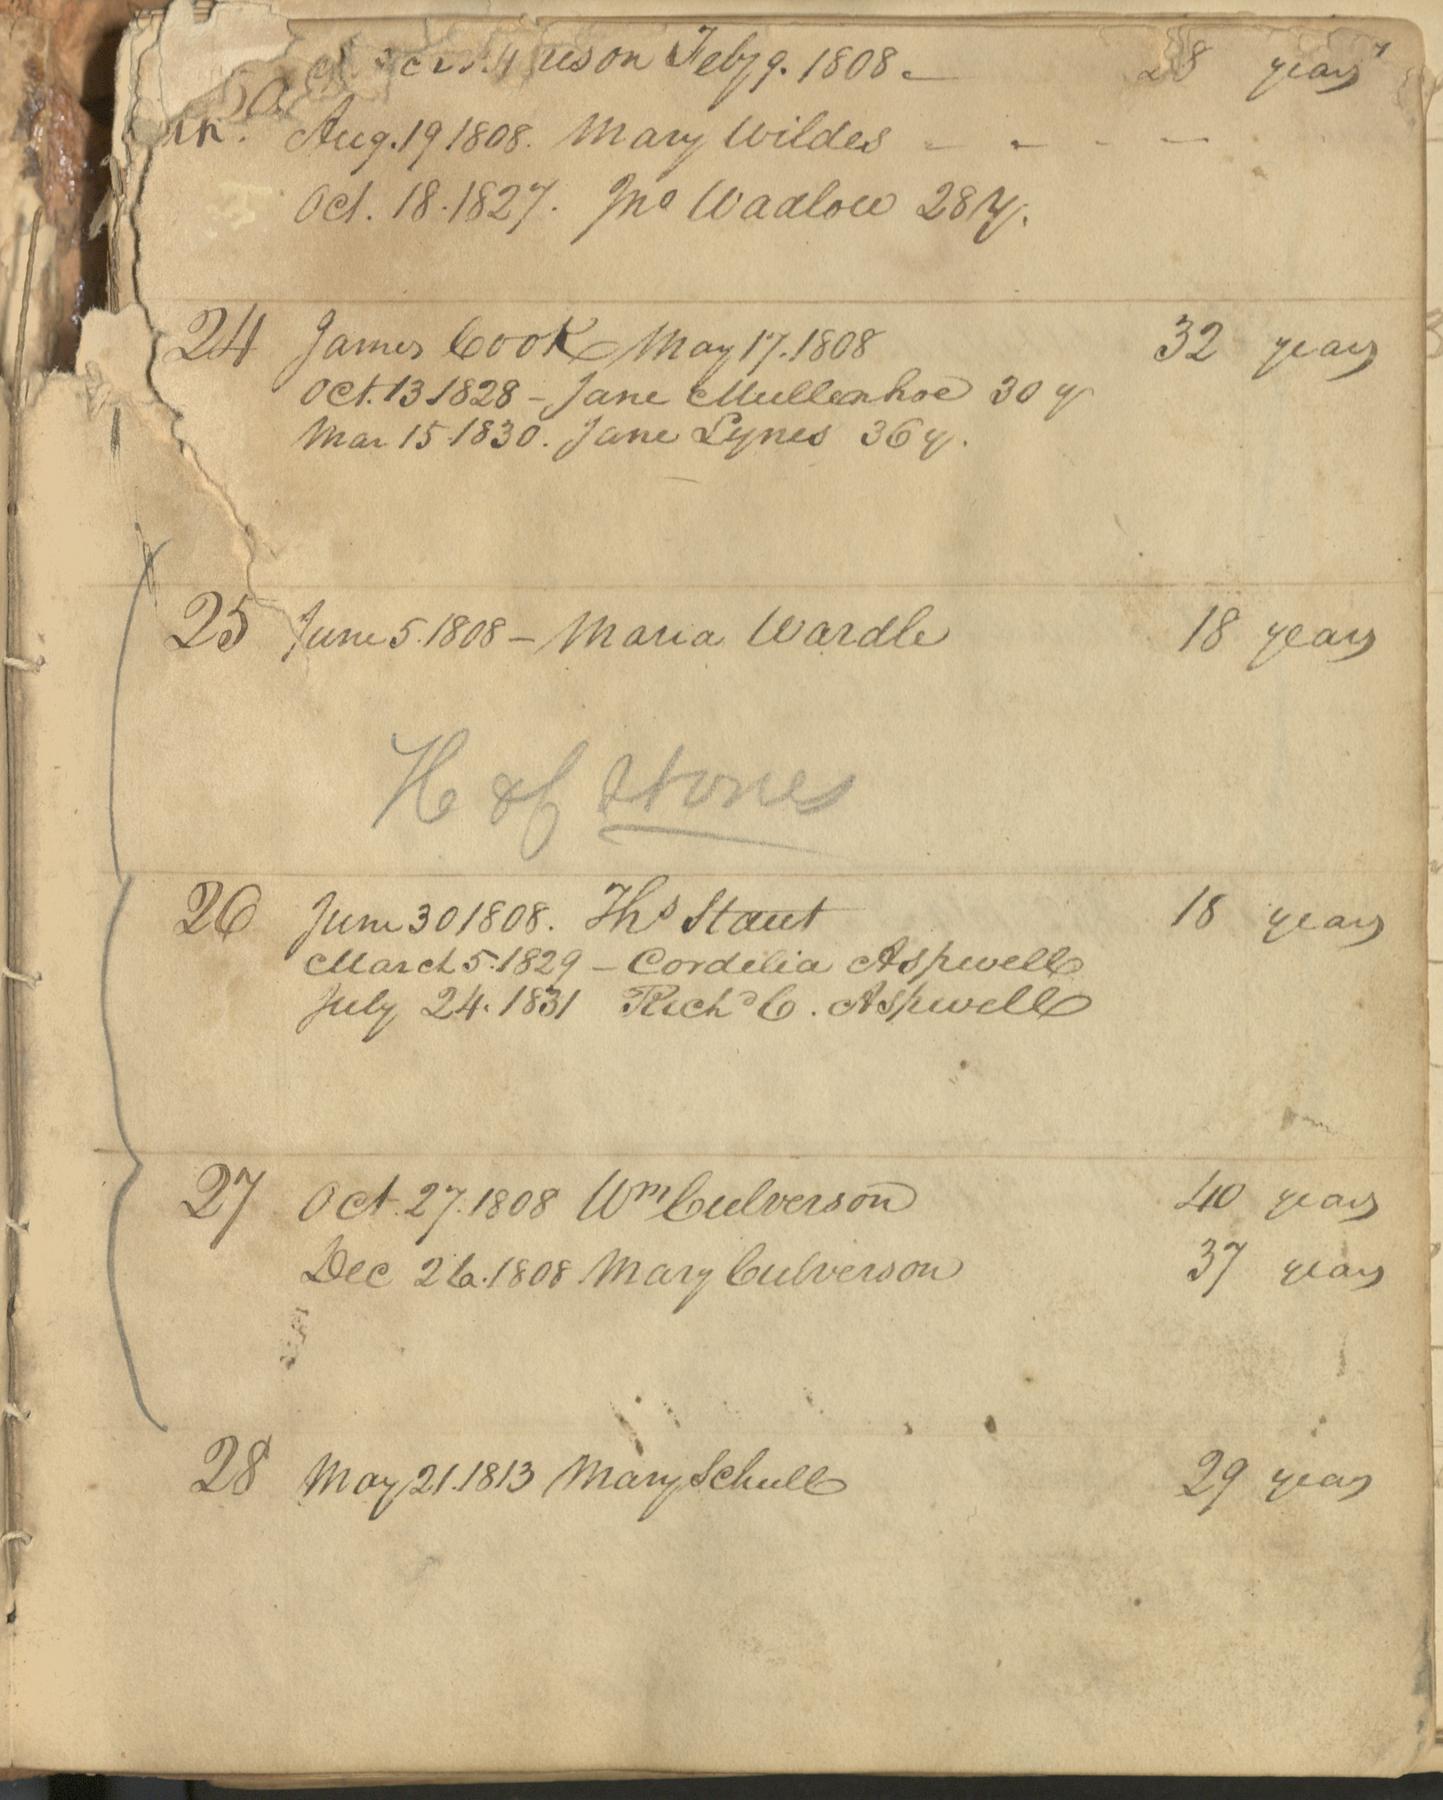 Feby 9. 1808. 28 years
Aug. 19 1808. Mary Wildes - - - -
Oct. 18. 1827. Jno Wadlow 28 y.
24 James Cook May 17. 1808 32 years
Oct. 13 1828 - Jane Mullenhoe 30 y
Mar 15 1830. Jane Lynes 36 y.
25 June 5. 1808 - Maria Wardle 18 years
H of Stones
26 June 30 1808. Ths Staut 18 years
March 5. 1829 - Cordelia Aspwell
July 24. 1831 Richd C. Aspwell
27 Oct. 27. 1808 Wm Culverson 40 years
Dec 26. 1808 Mary Culverson 37 years
28 May 21. 1813 Mary Schull 29 years